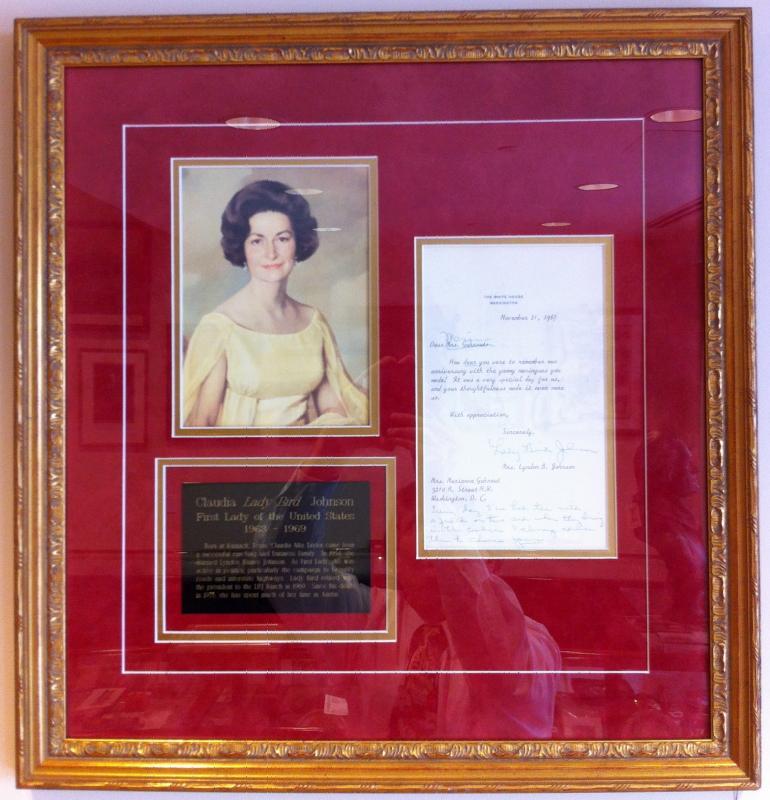 Claudia Lady Bird Johnson
First Lady of the United States
1963 - 1969
Born in Karnack, Texas, Claudia Alta Taylor came from
a successful ranching and business family. In 1934, she
married Lyndon Baines Johnson. As First Lady, she was
active in politics, particularly the campaign to beautify
roads and interstate highways. Lady Bird retired with
the president to the LBJ Ranch in 1969. Since his death
in 1973, she has spent much of her time in Austin.
THE WHITE HOUSE
WASHINGTON
November 21, 1967
Dear Mrs.
How dear you were to remember our
anniversary with the yummy meringues you
made! It was a very special day for us,
and your thoughtfulness made it even more
so.
With appreciation,
Sincerely,
Lady Bird Johnson
Mrs. Lyndon B. Johnson
Mrs. Marianna
3210 R. Street N.W.
Washington, D. C.